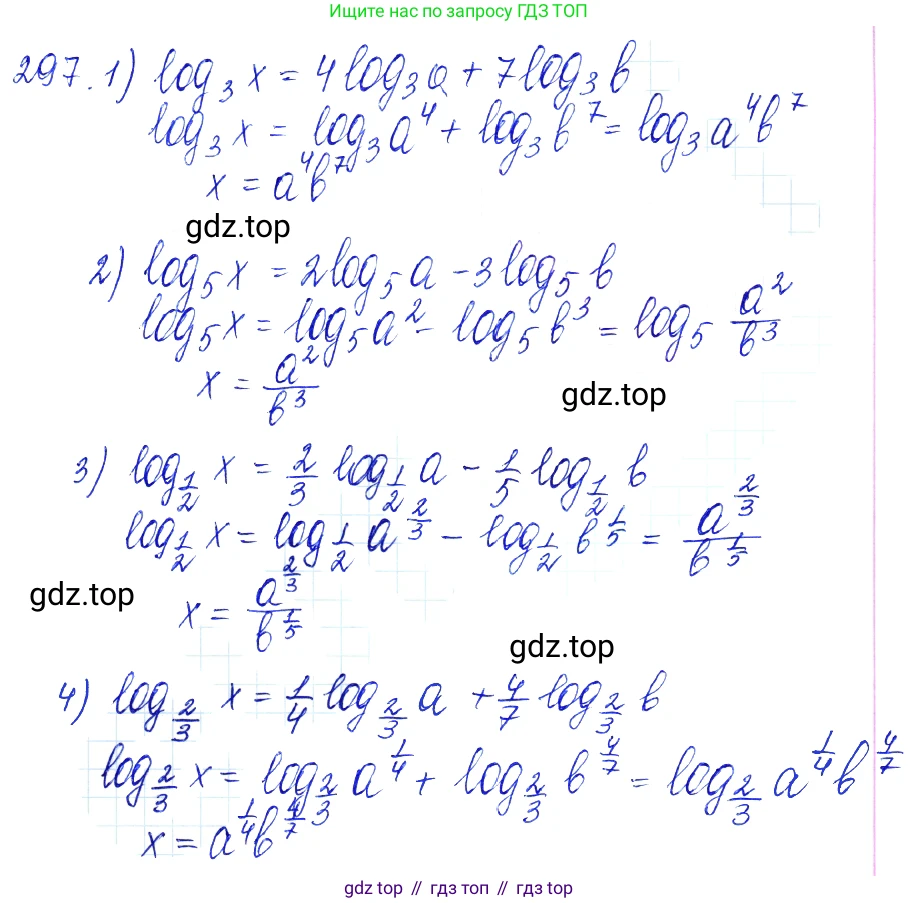 Ищите нас по запросу ГДЗ ТОП
297. 1) log₃ x = 4 log₃ a + 7 log₃ b
log₃ x = log₃ a⁴ + log₃ b⁷ = log₃ a⁴b⁷
x = a⁴b⁷
gdz.top
2) log₅ x = 2 log₅ a - 3 log₅ b
log₅ x = log₅ a² - log₅ b³ = log₅ a²/b³
x = a²/b³
gdz.top
3) log_{1/2} x = 2/3 log_{1/2} a - 1/5 log_{1/2} b
log_{1/2} x = log_{1/2} a^{2/3} - log_{1/2} b^{1/5} = a^{2/3}/b^{1/5}
gdz.top
x = a^{2/3}/b^{1/5}
gdz.top
4) log_{2/3} x = 1/4 log_{2/3} a + 4/7 log_{2/3} b
log_{2/3} x = log_{2/3} a^{1/4} + log_{2/3} b^{4/7} = log_{2/3} a^{1/4} b^{4/7}
x = a^{1/4} b^{4/7}
gdz top // гдз топ // gdz top